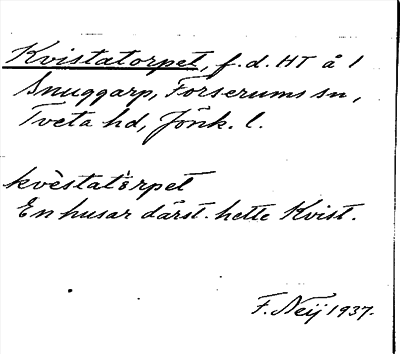 Kvistatorpet, f.d. HT å 1
Snuggarp, Forserums sn,
Tveta hd, Jönk. l.
kvèstatò̀rpet
En husar därst. hette Kvist.
F. Neij 1937.